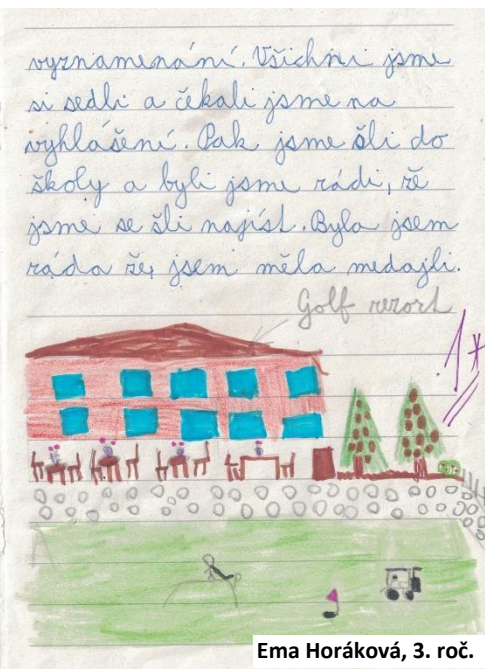 vyznamenání. Všichni jsme
si sedli a čekali jsme na
vyhlášení. Pak jsme šli do
školy a byli jsme rádi, že
jsme se šli najíst. Byla jsem
ráda že, jsem měla medajli.
Golf rezort
1*
Ema Horáková, 3. roč.